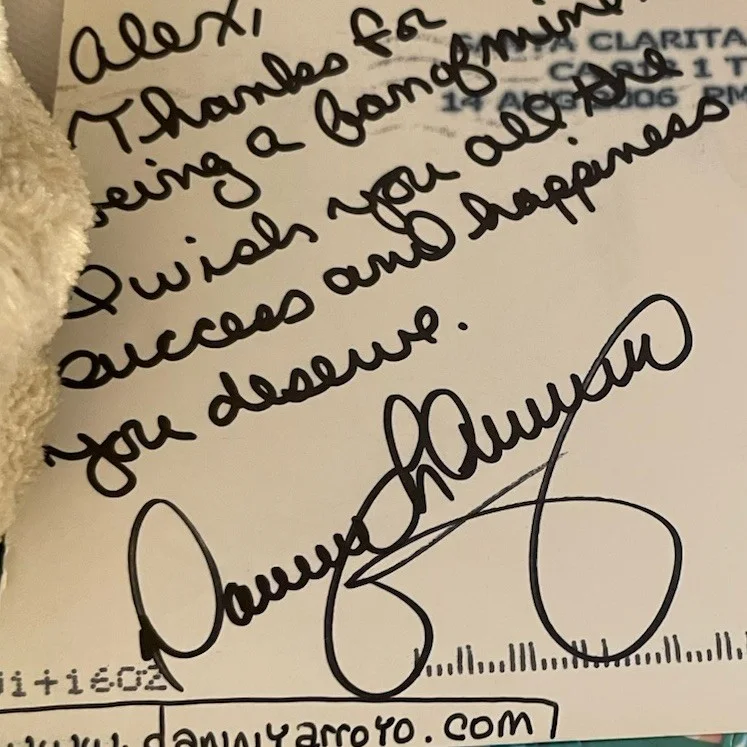 Alex,
Thanks for
being a fan of mine.
I wish you all the
success and happiness
you deserve.
Danny
SANTA CLARITA
CA 913 1 T
14 AUG 2006 PM
www.dannyarroyo.com